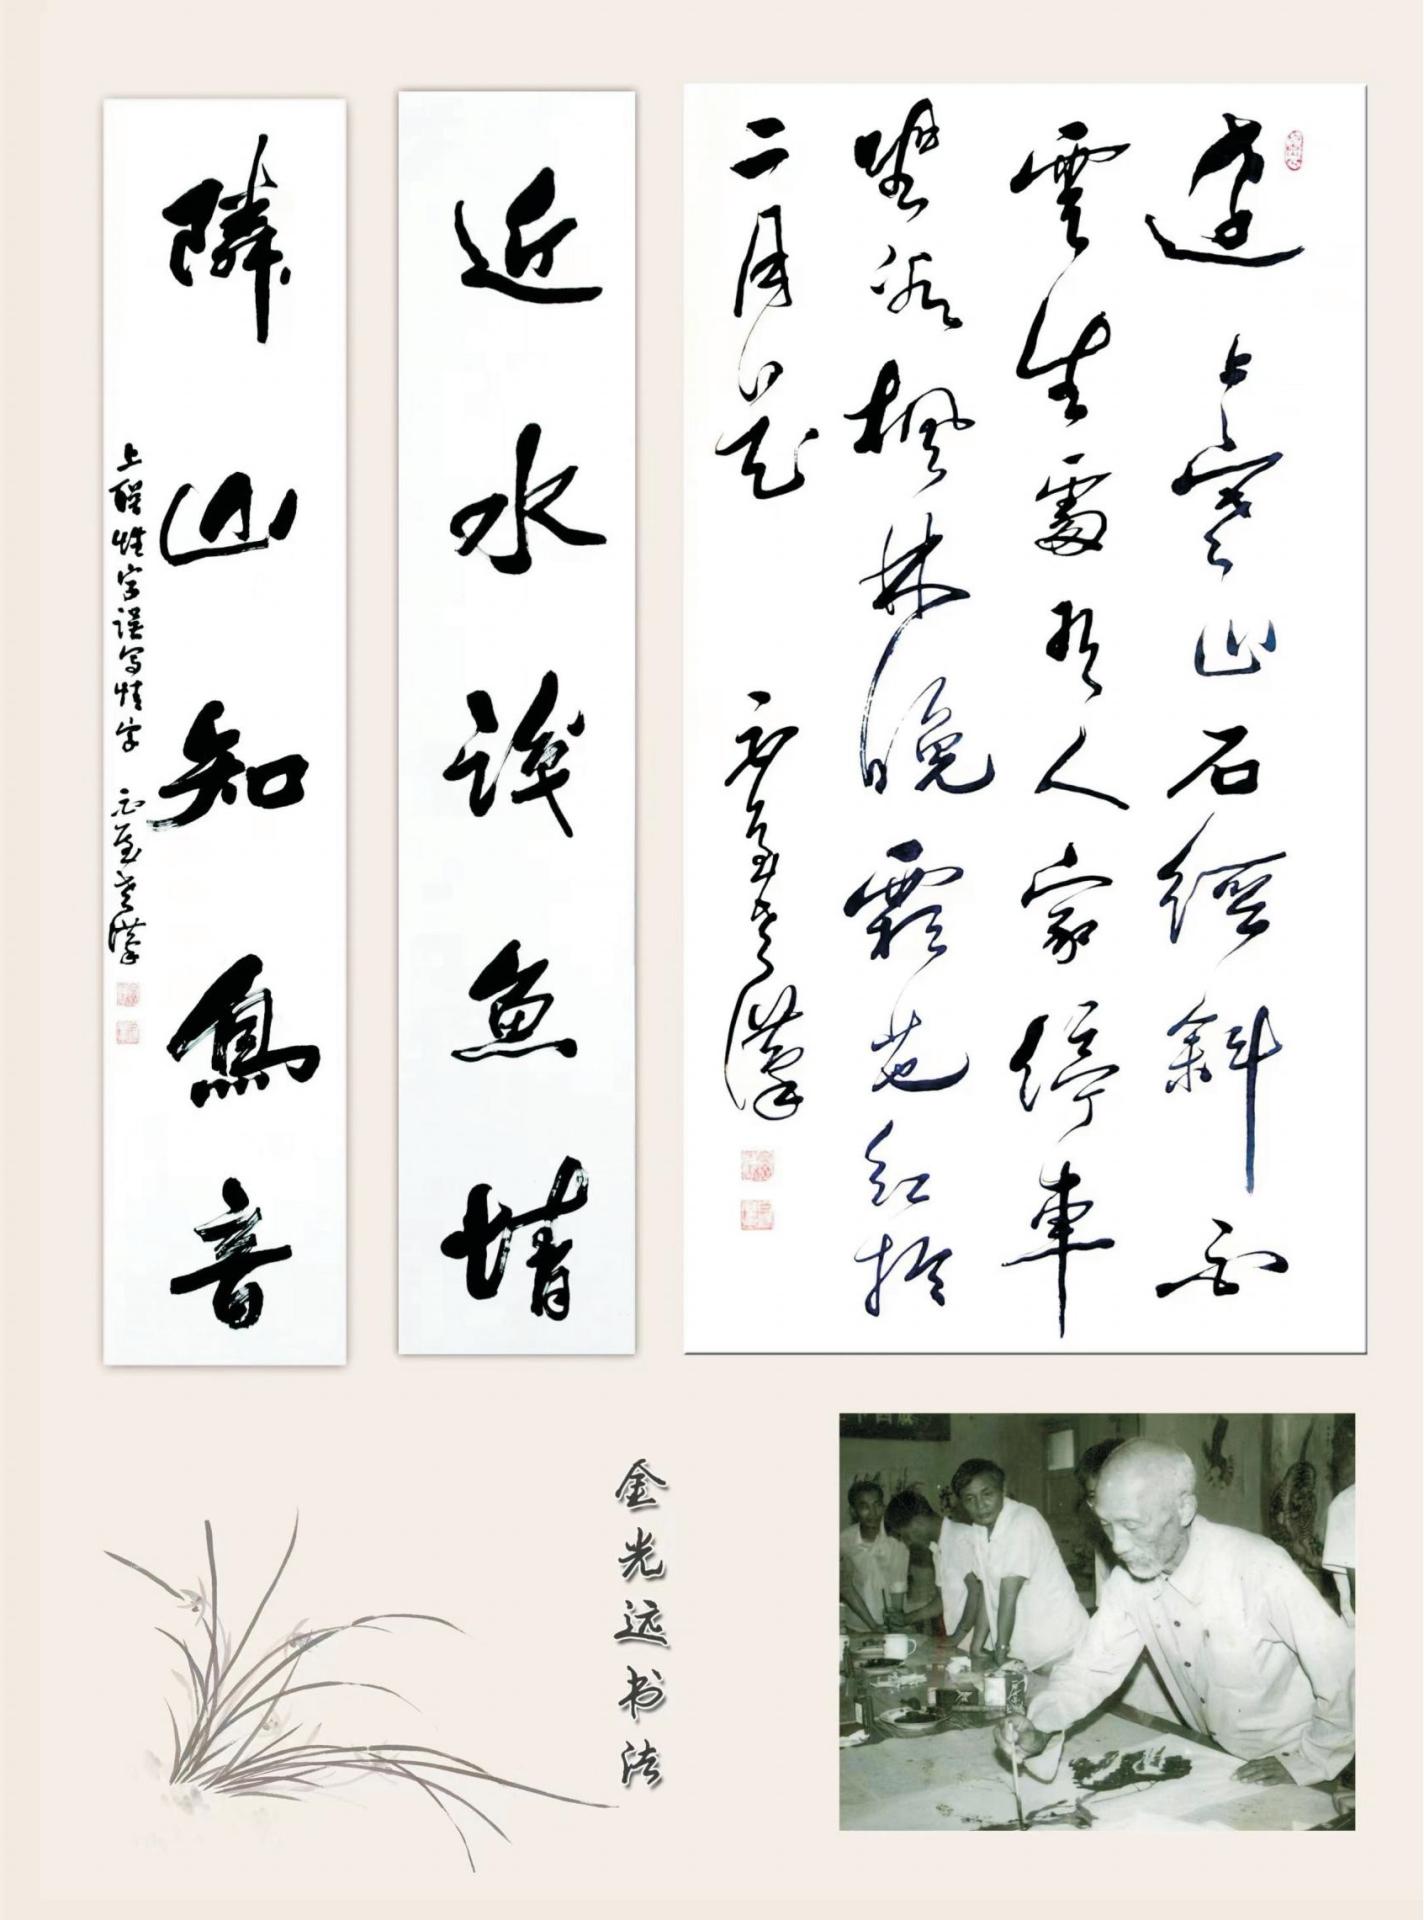 遠上寒山石徑斜白
雲生處有人家停車
坐愛楓林晚霜葉紅於
二月花
老漢
近水識魚情
隣山知鳥音
上聯性字误写情字
老漢
金光远书法